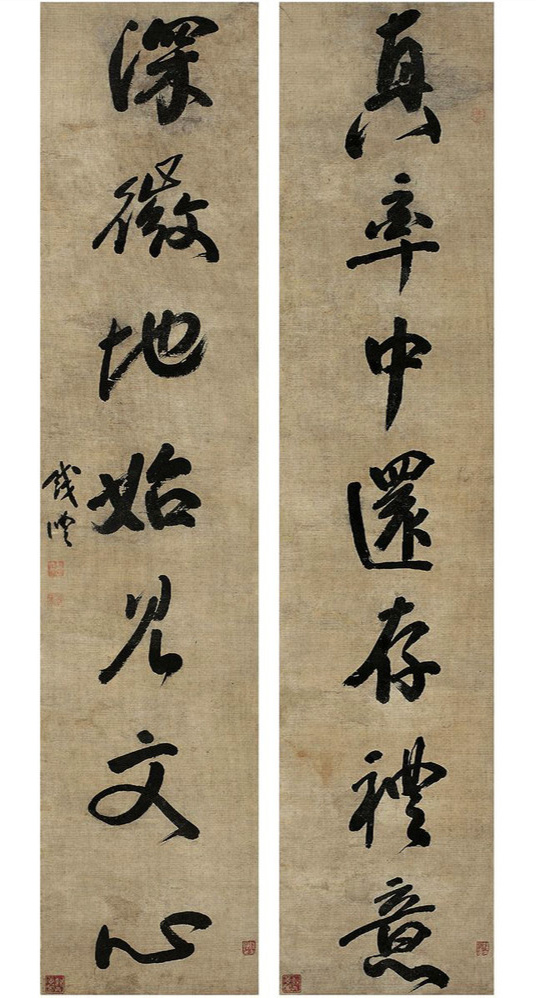 真率中還存禮意
深微地始見文心
錢灃